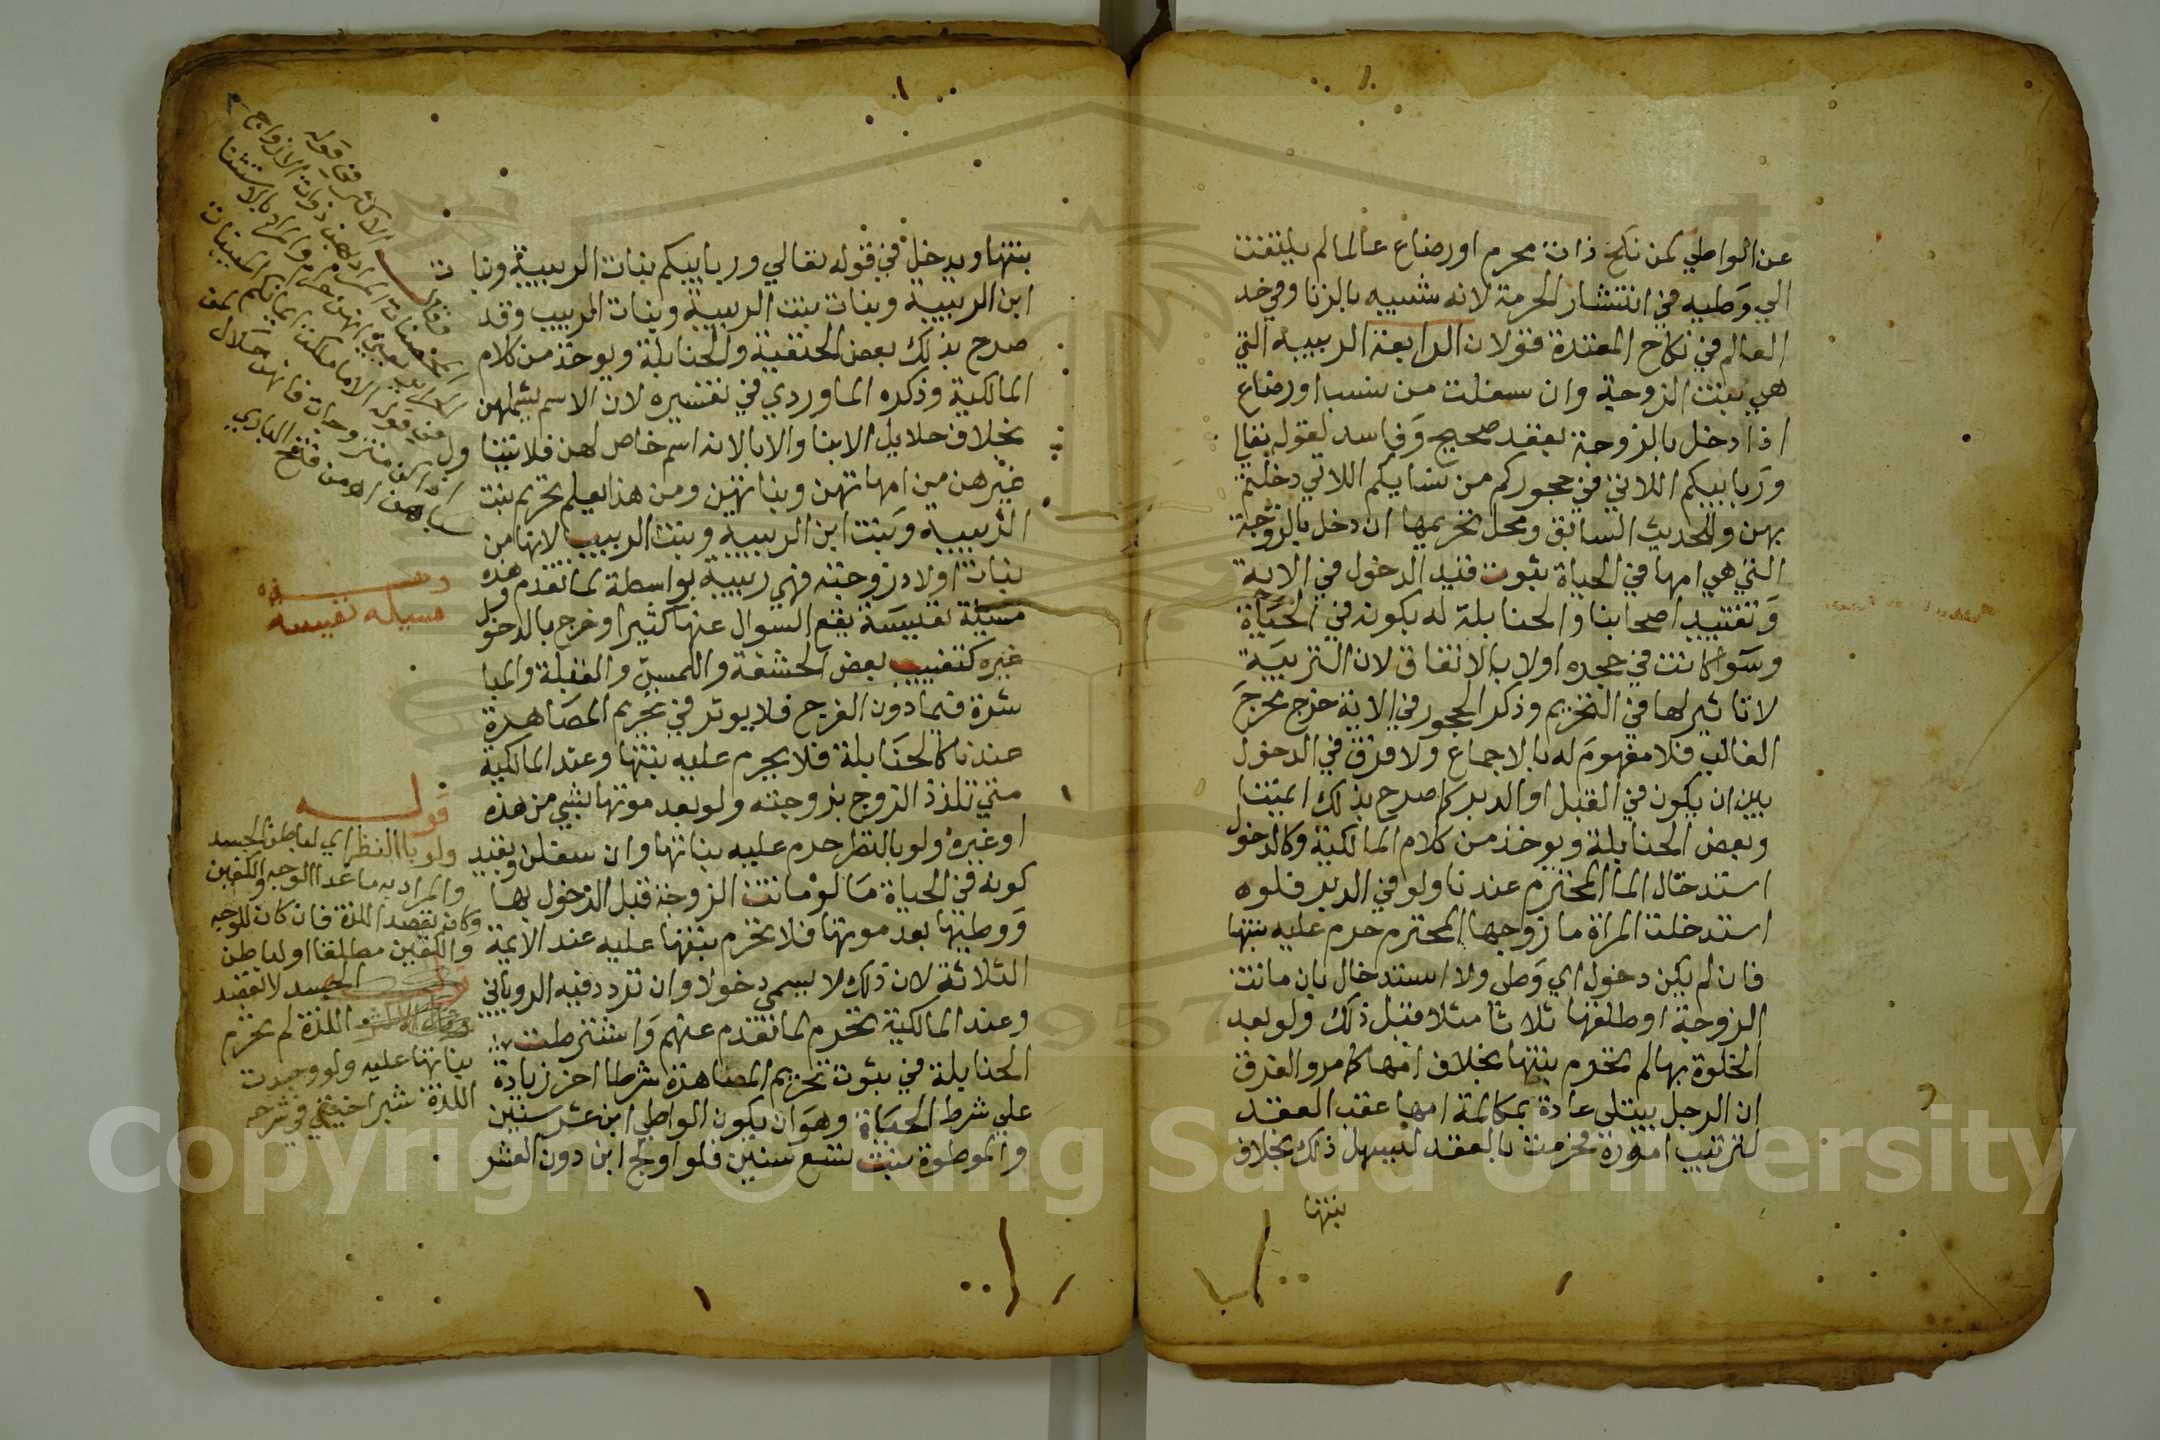 عن الواطي كمن نكح ذات محرم او رضاع عالما لم يلتفت
الي وطيه في انتشار الحرمة لانه شبيه بالزنا وفي حد
العالم في نكاح المعتدة قولان الرابعة الربيبه التي
هي بنت الزوجة وان سفلت من نسب او رضاع
اذا دخل بالزوجة بعقد صحيح وفاسد لقوله تعالي
وربايبكم اللاتي في حجوركم من نسايكم اللاتي دخلتم
بهن والحديث السابق ومحل تحريمها ان دخل بالزوجة
التي هي امها في الحياة بثوت قيد الدخول في الاية
وتقييد اصحابنا والحنابلة له بكونه في الحياة
وسوا كانت في حجره اولا بالاتفاق لان التربية
لا تاثير لها في التحريم وذكر الحجور في الاية خرج مخرج
الغالب فلا مفهوم له بالاجماع ولا فرق في الدخول
بين ان يكون في القبل او الدبر كما صرح بذلك ايمتنا
وبعض الحنابلة ويوخذ من كلام المالكية وكالدخول
استدخال الما المحترم عندنا ولو في الدبر فلوه
استدخلت المراة ما زوجها المحترم حرم عليه بنتها
فان لم يكن دخول اي وطي ولا استدخال بان ماتت
الزوجة او طلقها ثلاثا مثلا قبل ذلك ولو بعد
الخلوة بها لم تحرم بنتها بخلاف امها كما مر والفرق
ان الرجل يبتلي عادة بمكالمة امها عقب العقد
لترتيب اموره فحرمت بالعقد لتسهل ذلك بخلاف
بنتها
بنتها ويدخل في قوله تعالي وربايبكم بنات الربيبة وبنات
ابن الربيبة وبنات بنت الربيبة وبنات الربيب وقد
صرح بذلك بعض الحنفية والحنابلة ويوخذ من كلام
المالكية وذكره الماوردي في تفسيره لان الاسم يشملهن
بخلاف حلايل الابنا والابا لانه اسم خاص لهن فلا يتناول
غيرهن من امهاتهن وبناتهن ومن هذا يعلم تحريم بنت
الربيبة وبنت ابن الربيبة وبنت الربيب لانها من
بنات اولاد زوجته فهي ربيبة بواسطة لما تقدم وهذه
مسيلة نفيسة يقع السوال عنها كثيرا وخرج بالدخول
غيره كتغييب بعض الحشفة واللمس والقبلة والمبا
شرة فيما دون الفرج فلا يوثر في تحريم المصاهرة
عندنا كالحنابلة فلا يحرم عليه بنتها وعند المالكية
متي تلذذ الزوج بزوجته ولو بعد موتها بشي من هذه
او غيره ولو بالنظر حرم عليه بناتها وان سفلن وبقيد
كونه في الحياة ما لو ماتت الزوجة قبل الدخول بها
ووطيها بعد موتها فلا تحرم بنتها عليه عند الايمة
الثلاثة لان ذلك لا يسمي دخولا وان تردد فيه الروياني
وعند المالكية تحرم لما تقدم عنهم واشترطت
الحنابلة في ثبوت تحريم المصاهرة شرطا اخر زيادة
علي شرط الحياة وهو ان يكون الواطي ابن عشر سنين
والموطوة بنت تسع سنين فلو اولج ابن دون العشر
وهذه
مسيله نفيسه
قوله
ولو بالنظر اي لباطن الجسد
والمراد به ما عدا الوجه والكفين
وكان بقصد اللذة فان كان للوجه
والكفين مطلقا او لباطن
الجسد لا بقصد
اللذة لم تحرم
بناتها عليه ولو وجدت
اللذة شبراخيتي في شرحه